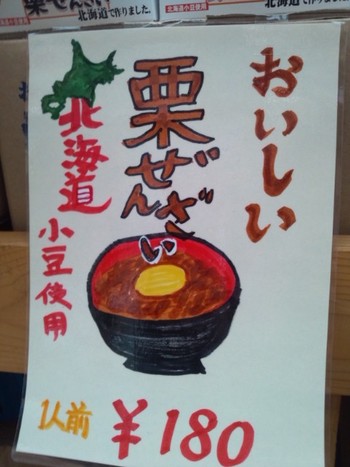 栗ぜんざい
北海道で作りました。
北海道小豆使用
北海道で作りました。
おいしい
栗ぜんざい
北海道
小豆使用
1人前
¥180